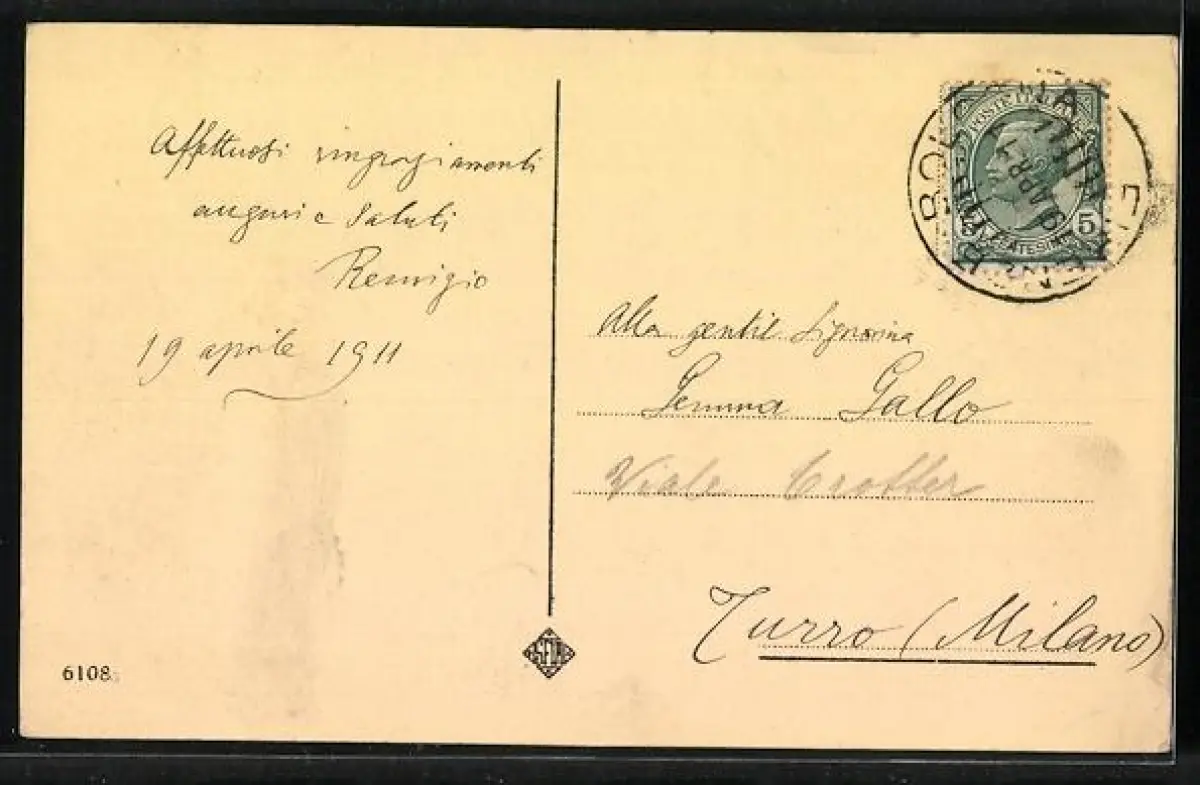 Affettuosi ringraziamenti
auguri e saluti
Remigio
19 aprile 1911
6108
POSTE
5
BOLOGNA
Alla gentil Signorina
Gemma Gallo
Viale Trotter
Turro (Milano)